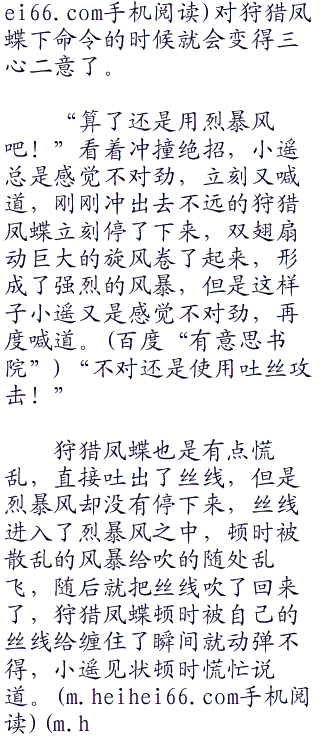 ei66.com手机阅读)对狩猎凤
蝶下命令的时候就会变得三
心二意了。
“算了还是用烈暴风
吧！”看着冲撞绝招，小遥
总是感觉不对劲，立刻又喊
道，刚刚冲出去不远的狩猎
凤蝶立刻停了下来，双翅扇
动巨大的旋风卷了起来，形
成了强烈的风暴，但是这样
子小遥又是感觉不对劲，再
度喊道。(百度“有意思书
院”)“不对还是使用吐丝攻
击！”
狩猎凤蝶也是有点慌
乱，直接吐出了丝线，但是
烈暴风却没有停下来，丝线
进入了烈暴风之中，顿时被
散乱的风暴给吹的随处乱
飞，随后就把丝线吹了回来
了，狩猎凤蝶顿时被自己的
丝线给缠住了瞬间就动弹不
得，小遥见状顿时慌忙说
道。(m.heihei66.com手机阅
读)(m.h